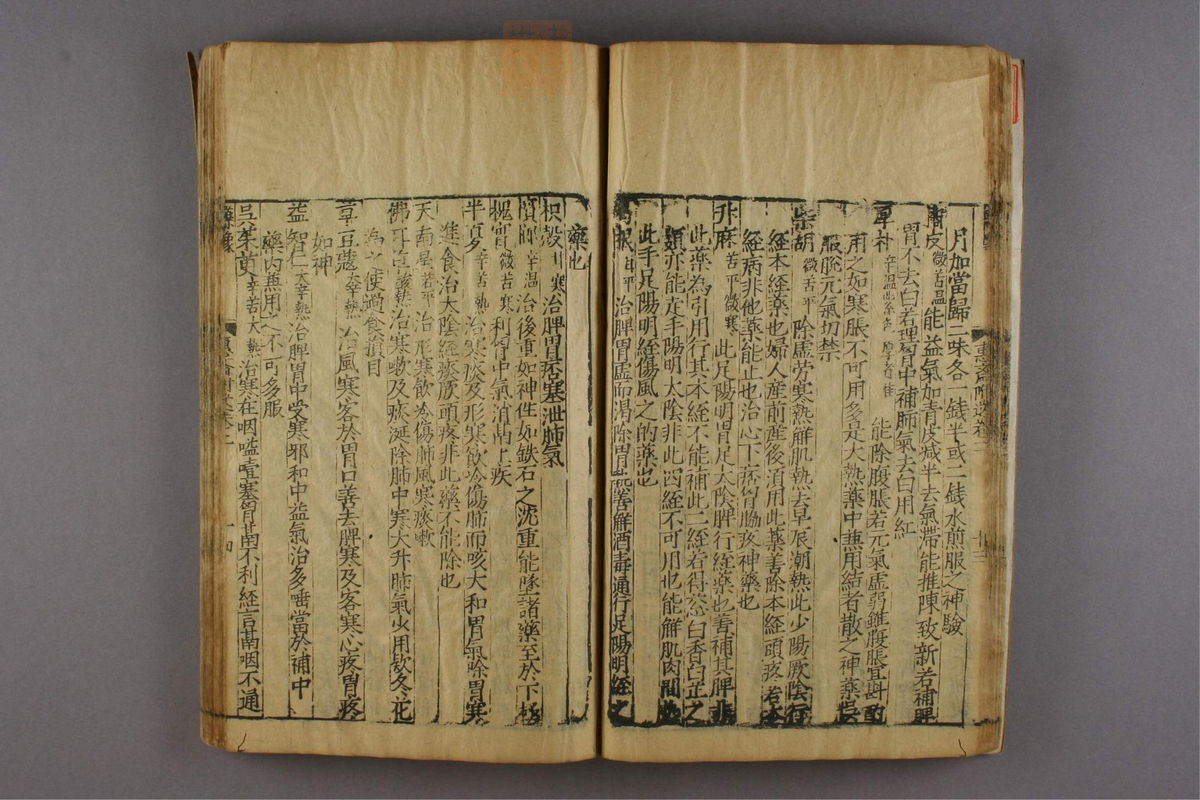 月加當歸二味各一錢半或二錢水煎服之神驗
青皮微苦溫能益氣加青皮減半去氣滯能推陳致新若補脾
胃不去白若理胸中補肺氣去白用紅
厚朴辛溫能除腹脹若元氣虛弱雖腹脹宜斟酌
用之如寒脹不可用多是大熱藥中兼用結者散之神藥
服脫元氣切禁
柴胡微苦平除虛勞寒熱解肌熱去早辰潮熱此少陽厥陰行
經本經藥也婦人產前產後須用此藥善除本經頭疼若本
經病非他藥能止也治心下痞胷脇痰神藥也
升麻苦平微寒此足陽明胃足太陰脾行經藥也善補其脾非
此藥為引用行其本經不能補此二經若得葱白香白芷之
類亦能走手陽明太陰非此四經不可用也能解肌肉間熱
此手足陽明經傷風之的藥也
葛根甘平治脾胃虛而渴除胃熱善解酒毒通行足陽明經之
藥也
枳殼寒治脾胃痞塞泄肺氣
枳實微苦寒利胷中氣消痞上痰
檳榔辛溫治後重如神性如鉄石之沈重能墜諸藥至於下極
半夏辛苦熱治寒痰及形寒飲冷傷肺而咳大和胃氣除胃寒
進食治太陰經痰厥頭疼非此藥不能除也
天南星苦平治形寒飲冷傷肺風寒痰嗽
佛耳草熱治寒嗽及痰涎除肺中寒大升肺氣少用欵冬花
為之使過食損目
草豆蔻大辛熱治風寒客於胃口善去脾寒及客寒心疼胃疼
如神
益智仁大辛熱治脾胃中受寒邪和中益氣治多唾當於補中
藥內兼用之不可多服
吳茱萸辛苦大熱治寒在咽嗌噎塞胷膈不利經言膈咽不通